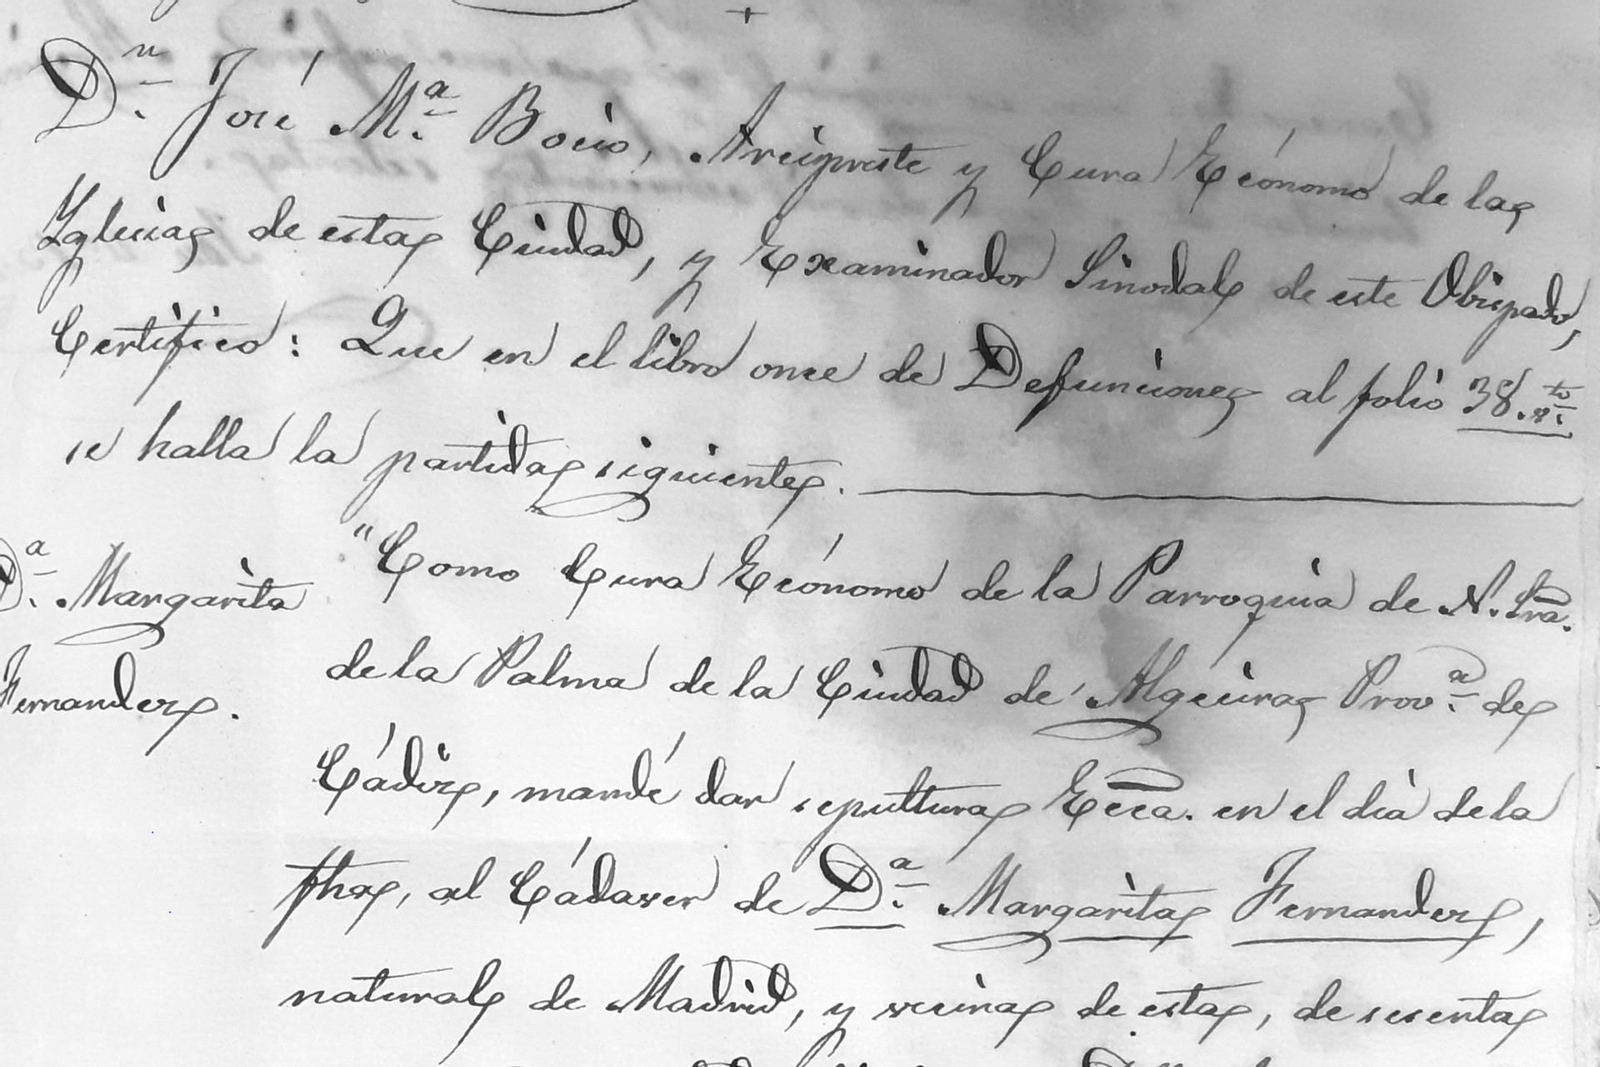 Dn. José Ma. Bocio, Arcipreste y Cura Ecónomo de la
Yglesia de esta Ciudad, y Examinador Sinodal de este Obispado,
Certifico: Que en el libro once de Defunciones al folio 38. vto.
se halla la partida siguiente.
Da. Margarita
Fernandez.
"Como Cura Ecónomo de la Parroquia de N. Sra.
de la Palma de la Ciudad de Algeciras Prova. de
Cádiz, mandé dar sepultura Ecca. en el dia de la
fha, al Cádaver de Da. Margarita Fernandez,
natural de Madrid, y vecina de esta, de sesenta